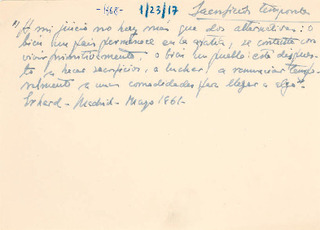 -1968- 1/23/17 Sacrificios temporales
"A mi juicio no hay más que dos alternativas: o
bien un país permanece en la apatía, se contenta con
vivir primitivamente, o bien un pueblo está dispues-
to a hacer sacrificios, a luchar, a renunciar tempo-
ralmente a unas comodidades para llegar a algo".
Erhard - Madrid - Mayo 1961-